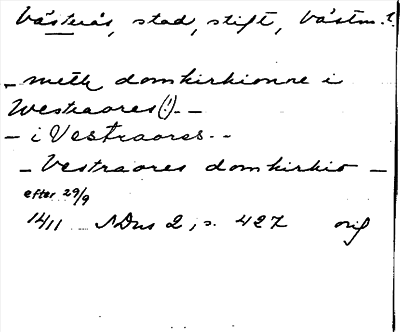 Västerås, stad, stift, Västm. l.
- meth domkirkionne i
Westraares (!). -
- i Vestraares. -
- Vestraares domkirkio -
efter 29/9
1411 SDns 2, s. 427 orig